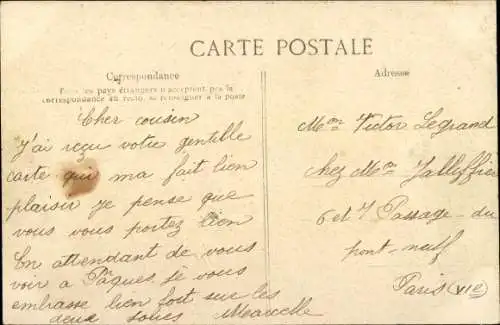 CARTE POSTALE
Correspondance
Tous les pays étrangers n'acceptent pas la
correspondance au recto, se renseigner à la poste
Cher cousin
J'ai reçu votre gentille
carte qui ma fait bien
plaisir je pense que
vous vous portez bien
En attendant de vous
voir a Pâques je vous
embrasse bien fort sur les
deux joues Marcelle
Adresse
Victor Legrand
chez
6 et 7 Passage du
pont-neuf
Paris (VIe)